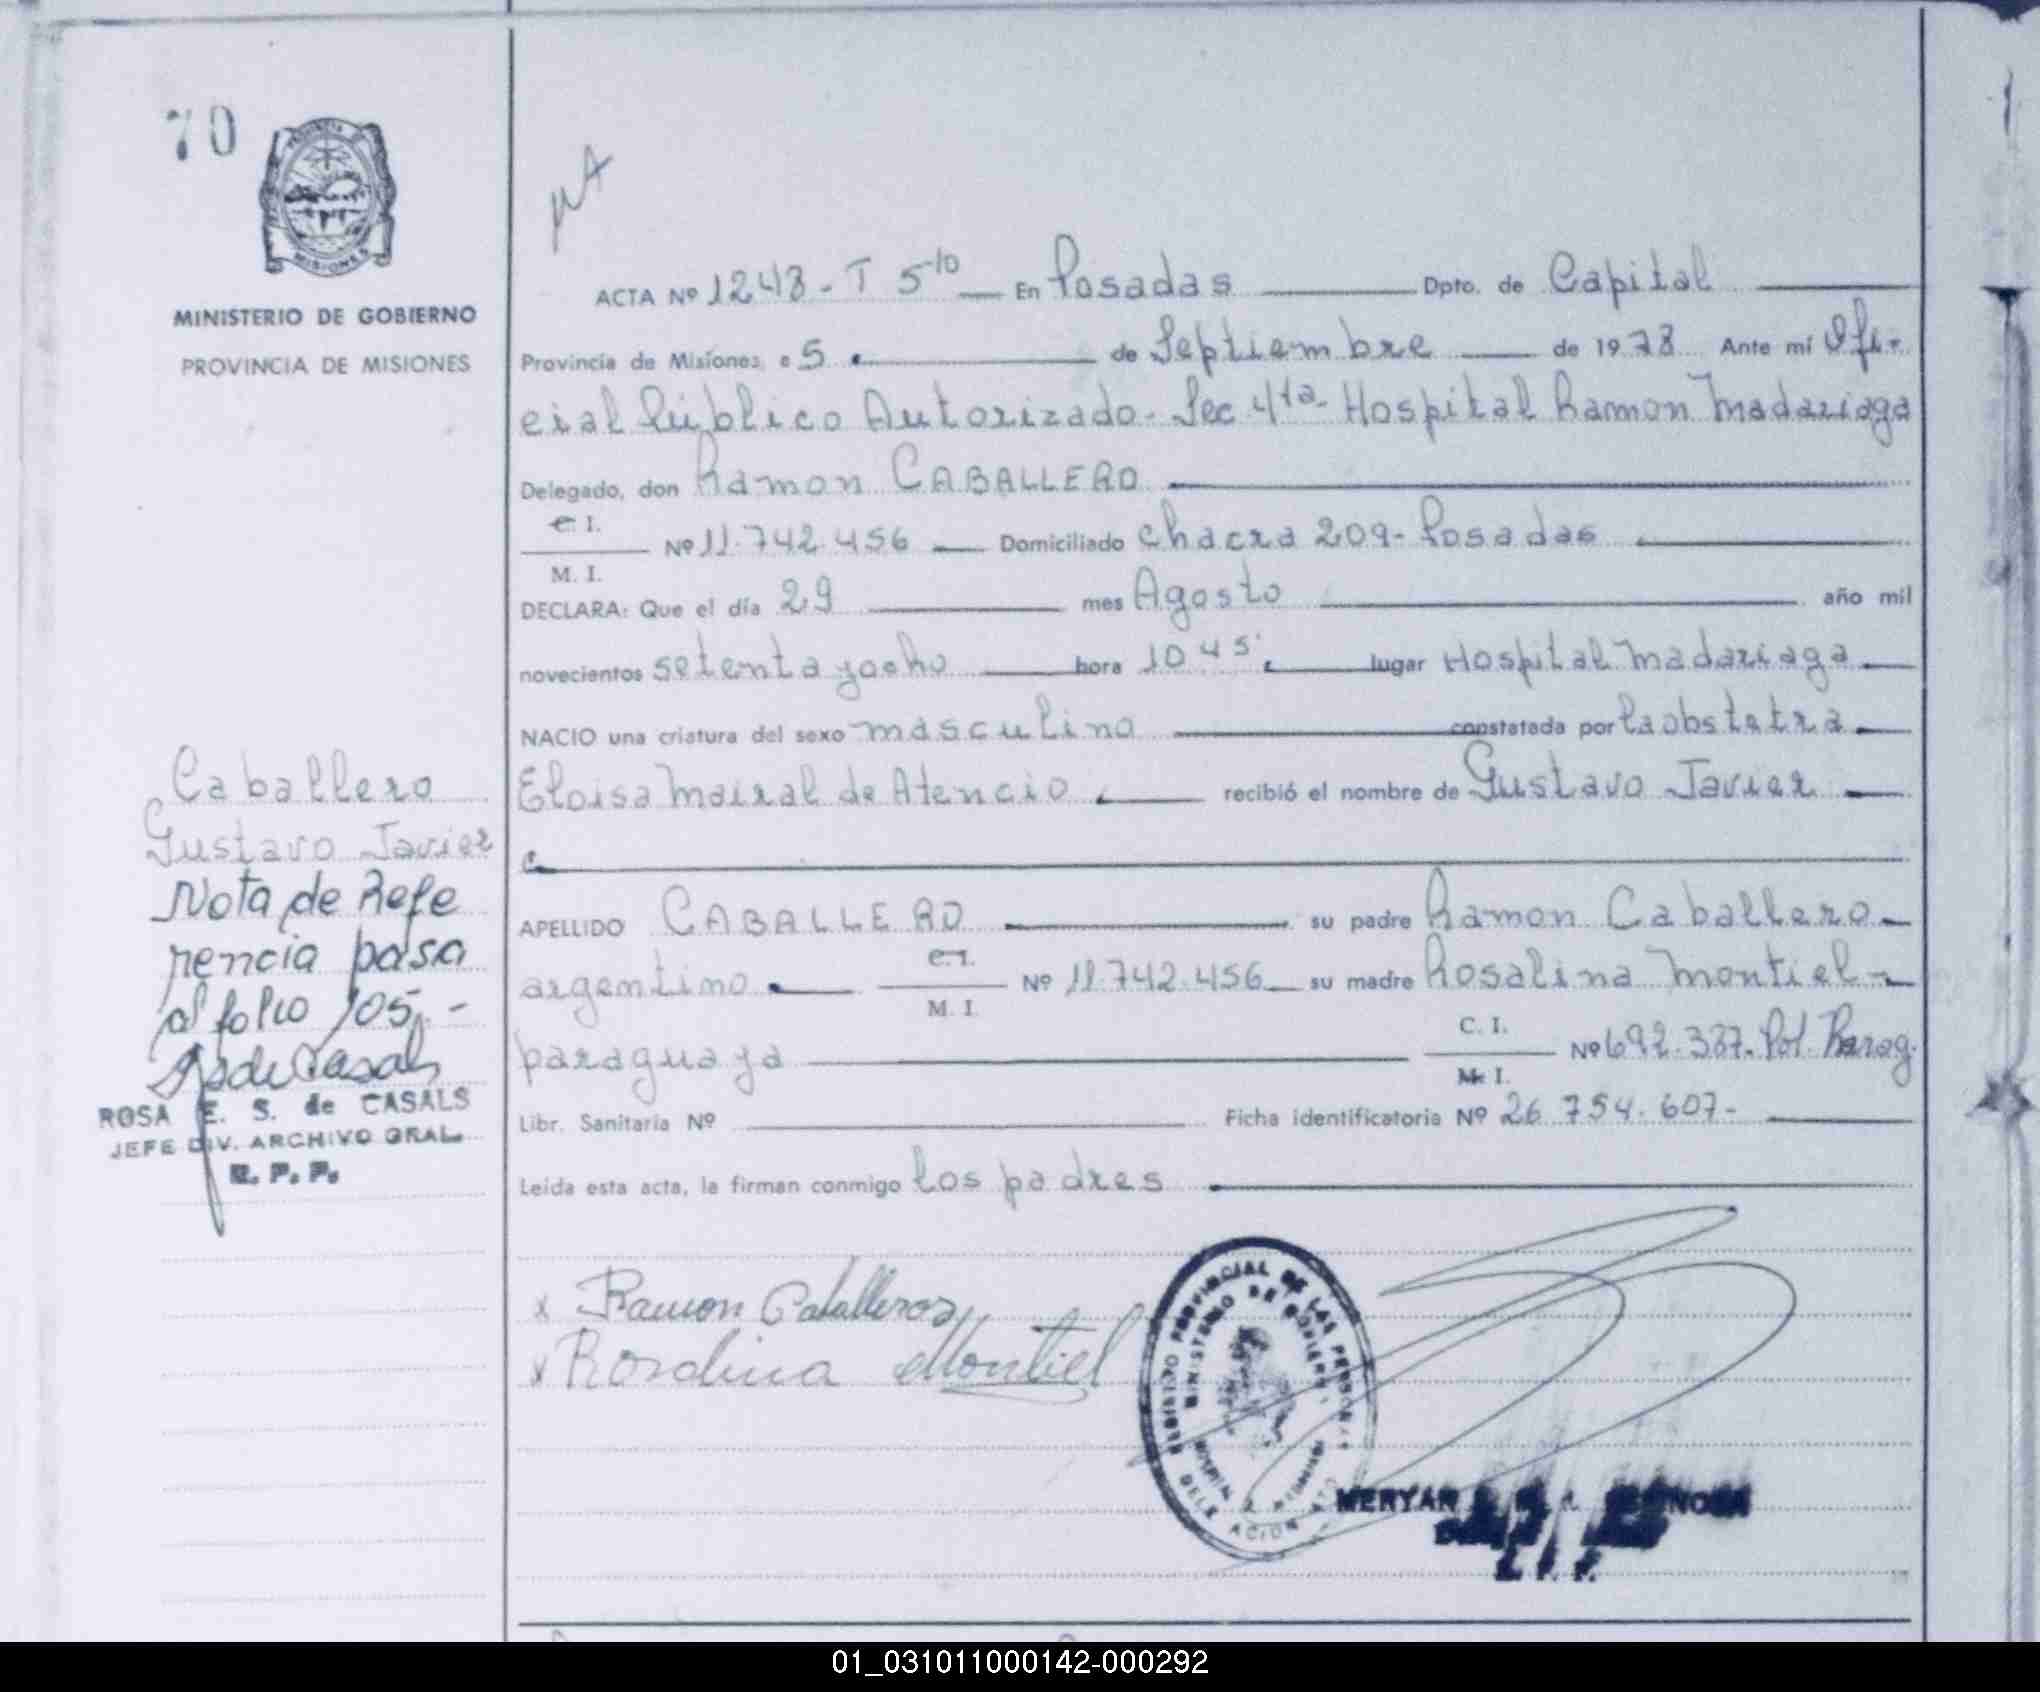 70
MINISTERIO DE GOBIERNO
PROVINCIA DE MISIONES
ACTA Nº 1243 - T 5-10 En Posadas Dpto. de Capital
Provincia de Misiones, a 5 de Septiembre de 1978 Ante mí Ofi-
cial Público Autorizado - Sec 4ta - Hospital Ramon Madariaga
Delegado, don Ramon CABALLERO
C. I.
Nº 11.742.456 Domiciliado Chacra 209 - Posadas
M. I.
DECLARA: Que el día 29 mes Agosto año mil
novecientos setenta y ocho hora 10 45' lugar Hospital Madariaga
NACIO una criatura del sexo masculino constatada por la obstetra
Eloisa Mairal de Atencio recibió el nombre de Gustavo Javier
APELLIDO CABALLERO su padre Ramon Caballero
argentino C. I. Nº 11.742.456 su madre Rosalina Montiel
M. I.
paraguaya C. I. Nº 692.387. Pol. Parag.
M. I.
Libr. Sanitaria Nº Ficha identificatoria Nº 26.754.607-
Leída esta acta, la firman conmigo los padres
x Ramon Caballero
x Rosalina Montiel
Caballero
Gustavo Javier
Nota de Refe
rencia pasa
al folio 105.-
ROSA E. S. de CASALS
JEFE DIV. ARCHIVO GRAL.
R. P. P.
REGISTRO PROVINCIAL DE LAS PERSONAS
MINISTERIO DE GOBIERNO
DELEGACION
MERYAR
01_031011000142-000292